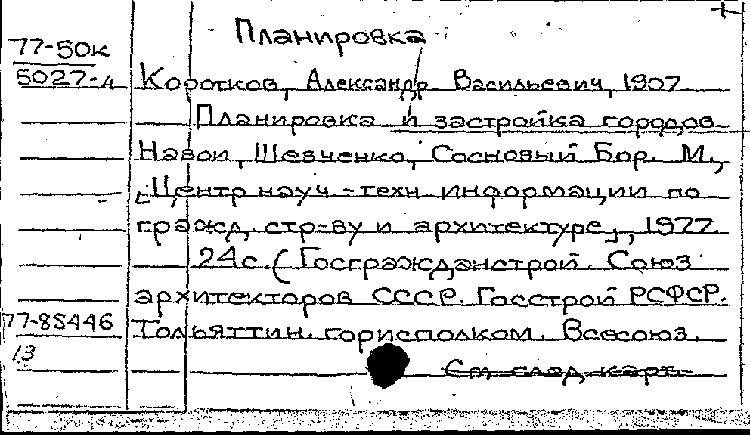 Планировка
77-50к
5027-л
Коротков, Александр Васильевич, 1907
Планировка и застройка городов
Навои, Шевченко, Сосновый Бор. М.,
[Центр науч.-техн. информации по
гражд. стр-ву и архитектуре], 1977.
24с. (Госгражданстрой. Союз
архитекторов СССР. Госстрой РСФСР.
77-88446
Тольяттин. горисполком. Всесоюз.
13
См. след. карт.